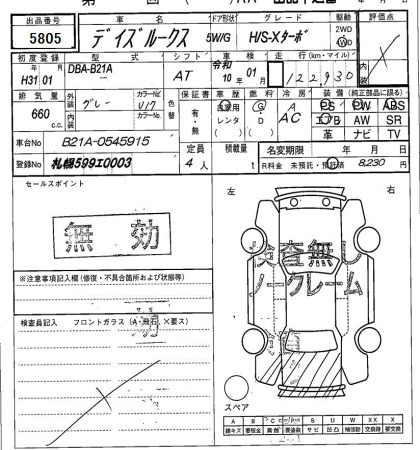 出品番号 車名 ドア形状 グレード 駆動 評価点
5805 デイズルークス 5W/G H/S-Xターボ 2WD
4WD
初度登録 型式 シフト 車検 走行(km・マイル)
H31年01月 DBA-B21A AT 令和10年01月 122,930
排気量 外装色 カラーNo. 内装色 カラーNo. 色替 保証書 車歴 燃料 冷房 装備(純正部品に限る)
660c.c. グレー 有・無 自家用 レンタ G D AC PS PW ABS
エアB AW SR
革 ナビ TV
車台No B21A-0545915
定員 積載量 名変期限 年 月 日
登録No 札幌599エ0003 4人 t R料金 未預託・預託済 8,230円
セールスポイント
無効
※注意事項記入欄(修復・不具合箇所および状態等)
検査員記入 フロントガラス(A・飛石・×要ス)
左 右
検査無し
ノークレーム
スペア
A B C S U W XX X
線キズ 要板金 腐蝕 要塗装 サビ 凹凸 補修跡 交換跡 要交換